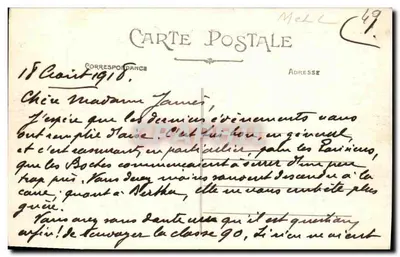 Mehl
49
CARTE POSTALE
CORRESPONDANCE
ADRESSE
18 Août 1918.
Chère Madame James,
J'espère que les derniers évènements vous
ont remplie d'aise. C'est bon, en général,
et c'est rassurant, en particulier pour les Parisiens,
que les Boches commençaient à serrer d'un peu
trop près. Vous devez moins souvent descendre à la
cave; quant à Bertha, elle ne vous embête plus
guère.
Vous avez sans doute vu qu'il est question,
enfin! de renvoyer la classe 90. Si n'en